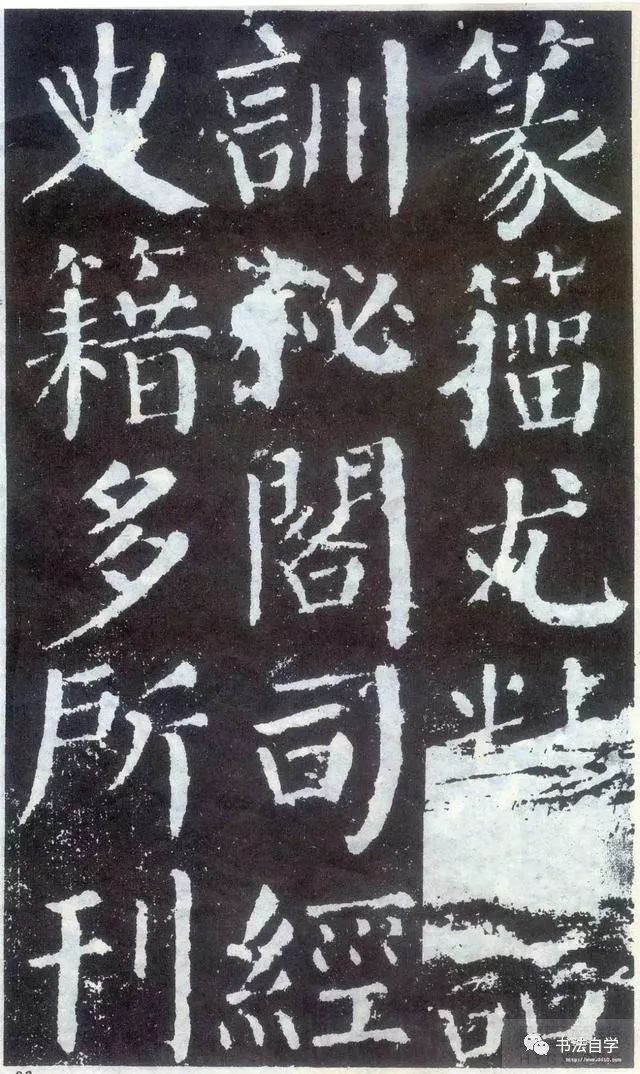 篆籀尤精詁
訓秘閣司經
史籍多所刊
书法自学